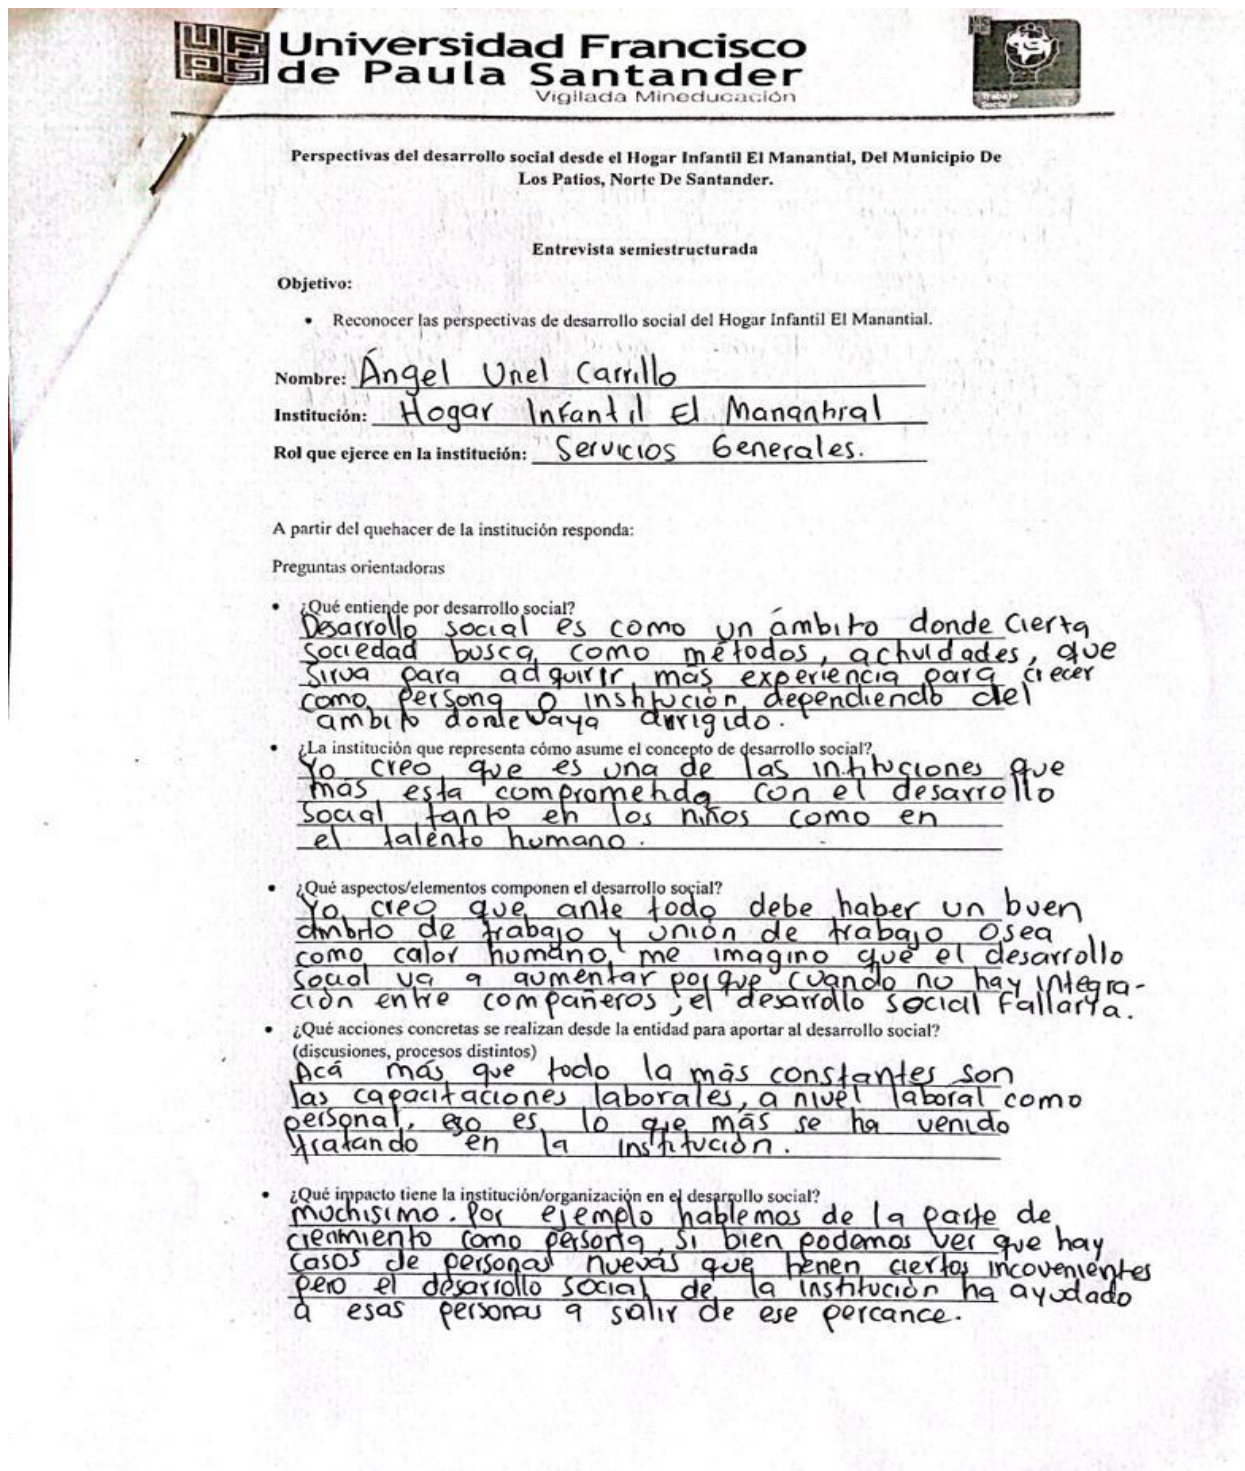 UFPS Universidad Francisco
de Paula Santander
Vigilada Mineducación
Trabajo
Social
Perspectivas del desarrollo social desde el Hogar Infantil El Manantial, Del Municipio De
Los Patios, Norte De Santander.
Entrevista semiestructurada
Objetivo:
• Reconocer las perspectivas de desarrollo social del Hogar Infantil El Manantial.
Nombre: Ángel Uriel Carrillo
Institución: Hogar Infantil El Mananhial
Rol que ejerce en la institución: Servicios Generales.
A partir del quehacer de la institución responda:
Preguntas orientadoras
• ¿Qué entiende por desarrollo social?
Desarrollo social es como un ámbito donde cierta
sociedad busca como métodos, actividades, que
sirva para adquirir más experiencia para crecer
como persona o institución dependiendo del
ambito donde vaya dirigido.
• ¿La institución que representa cómo asume el concepto de desarrollo social?
Yo creo que es una de las intituciones que
más esta comprometida con el desarrollo
social tanto en los niños como en
el talento humano.
• ¿Qué aspectos/elementos componen el desarrollo social?
Yo creo que ante todo debe haber un buen
ámbito de trabajo y unión de trabajo osea
como calor humano, me imagino que el desarrollo
social va a aumentar porque cuando no hay integra-
ción entre compañeros, el desarrollo social fallaría.
• ¿Qué acciones concretas se realizan desde la entidad para aportar al desarrollo social?
(discusiones, procesos distintos)
Acá más que todo la más constantes son
las capacitaciones laborales, a nivel laboral como
personal, eso es lo que más se ha venido
tratando en la institución.
• ¿Qué impacto tiene la institución/organización en el desarrollo social?
muchisimo. Por ejemplo hablemos de la parte de
crecimiento como persona, si bien podemos ver que hay
casos de personas nuevas que tienen ciertos incovenientes
pero el desarrollo social de la institución ha ayudado
a esas personas a salir de ese percance.